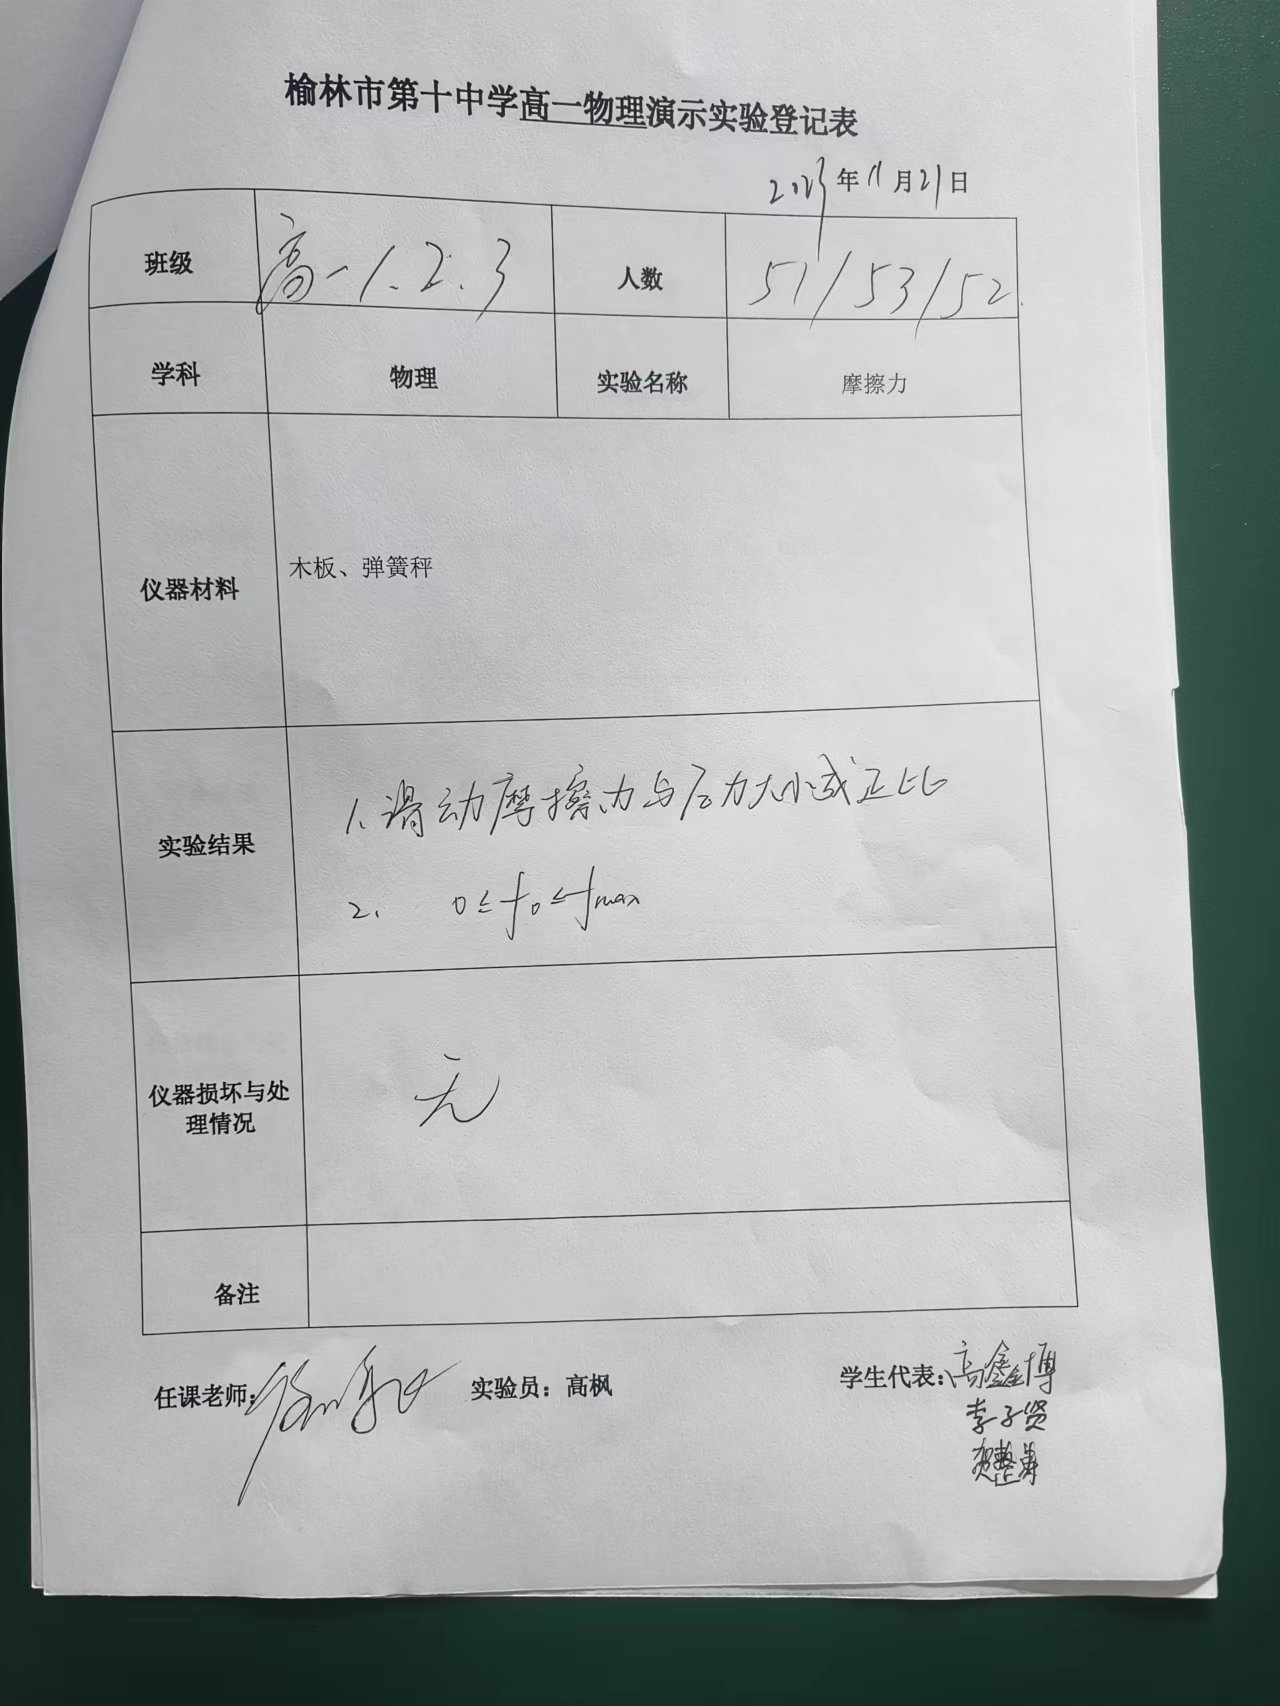 榆林市第十中学高一物理演示实验登记表
2023年11月21日
班级 高一1.2.3 人数 51/53/52.
学科 物理 实验名称 摩擦力
仪器材料 木板、弹簧秤
实验结果 1.滑动摩擦力与压力大小成正比
2. 0≤f0≤fmax
仪器损坏与处理情况 无
备注
任课老师: 实验员：高枫 学生代表:高鑫博
李子贤